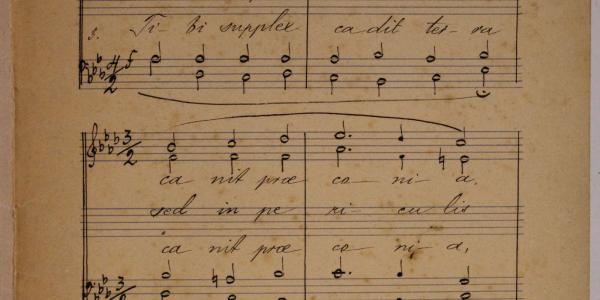 3. Ti- bi supplex ca dit ter- ra
f
4/2
3/2
ca nit præ co- ni- a.
sed in pe ri- cu lis
ca nit præ co- ni- a,
3/2